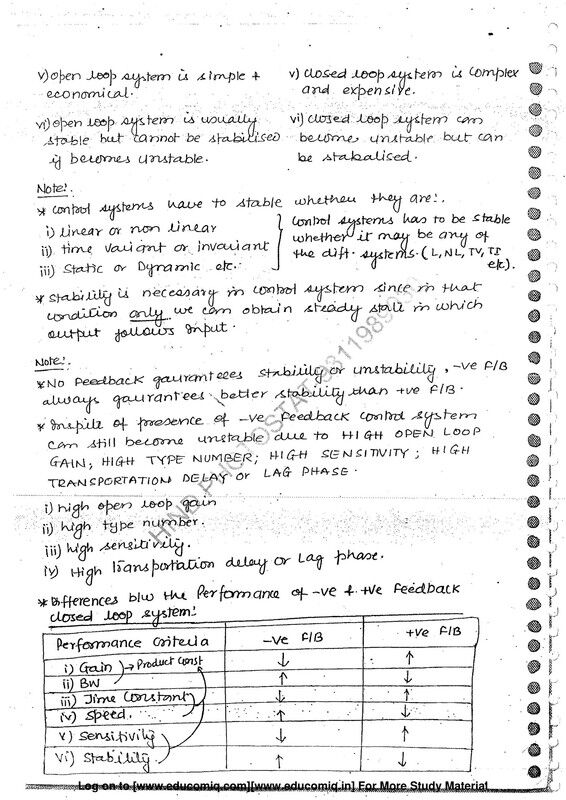 v) open loop system is simple + economical.
v) closed loop system is complex and expensive.
vi) open loop system is usually stable but cannot be stabilised if becomes unstable.
vi) closed loop system can become unstable but can be stabalised.
Note:.
* control systems have to stable whether they are:.
i) linear or non linear
ii) time variant or invariant
iii) Static or Dynamic etc.
control systems has to be stable
whether it may be any of
the diff. systems. (L, NL, TV, TI
etc).
* Stability is necessary in control system since in that
condition only we can obtain steady state in which
output follows input.
Note:.
* No Feedback gaurantees stability or unstability, -ve F/B
always gaurantees better stability than +ve F/B.
* Inspite of presence of -ve feedback control system
can still become unstable due to HIGH OPEN LOOP
GAIN; HIGH TYPE NUMBER; HIGH SENSITIVITY; HIGH
TRANSPORTATION DELAY OR LAG PHASE.
i) high open loop gain
ii) high type number.
iii) high sensitivity.
iv) High transportation delay or Lag phase.
* Differences b/w the Performance of -ve & +ve Feedback
closed loop system:
Performance criteria -ve F/B +ve F/B
i) Gain → Product const ↓ ↑
ii) BW ↑ ↓
iii) Time constant ↓ ↑
iv) speed. ↑ ↓
v) Sensitivity ↓ ↑
vi) Stability ↑ ↓
HIND PHOTOSTAT
Log on to [www.educomiq.com][www.educomiq.in] For More Study Material